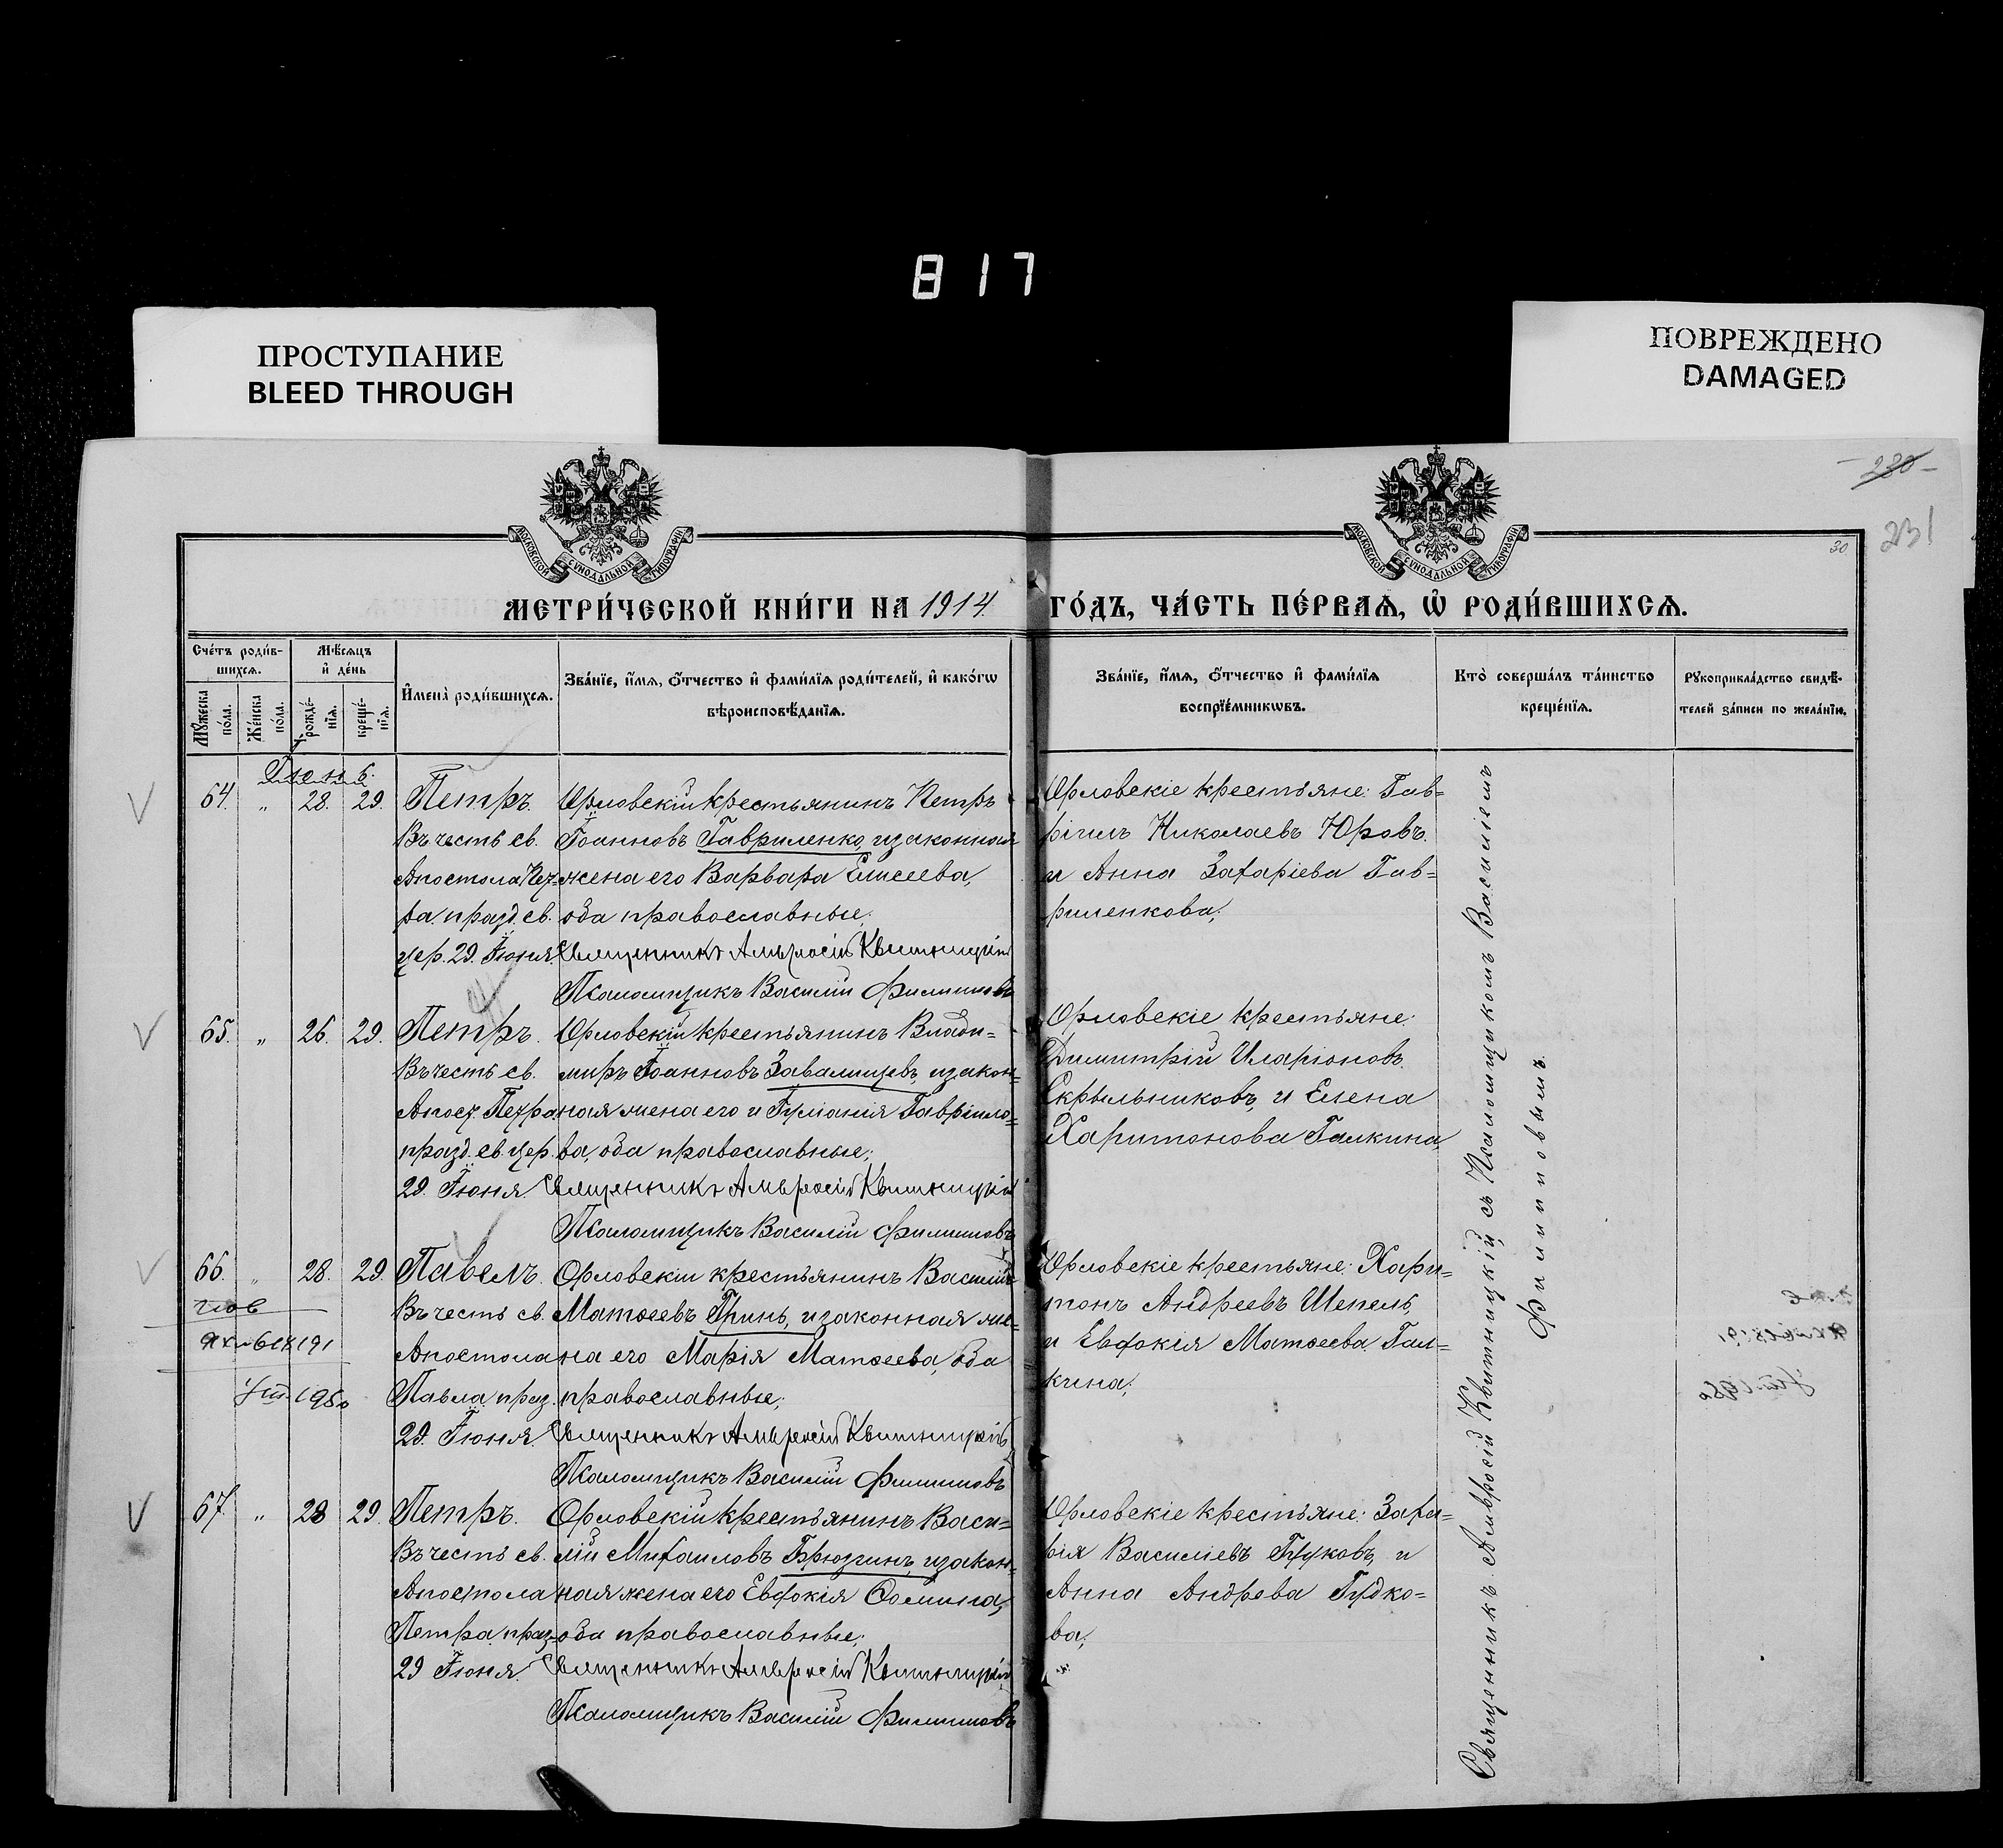 817
ПРОСТУПАНИЕ
BLEED THROUGH
ПОВРЕЖДЕНО
DAMAGED
- 230 -
231
30
МОСКОВСКОЙ СѴНОДАЛЬНОЙ ТИПОГРАФІИ
МОСКОВСКОЙ СѴНОДАЛЬНОЙ ТИПОГРАФІИ
МЕТРИ́ЧЕСКОЙ КНИ́ГИ НА 1914 ГО́ДЪ, ЧА́СТЬ ПЕ́РВАѦ, Ѡ҆ РОДИ́ВШИХСѦ.
Сче́тъ роди́в-
шихсѧ.
Мꙋ́жеска
по́ла.
Же́нска
по́ла.
Мѣ́сѧцъ
и҆ де́нь
рожде́-
нїѧ.
креще́-
нїѧ.
И҆мена̀ роди́вшихсѧ.
Зва́нїе, и҆́мѧ, ѻ҆́тчество и҆ фами́лїѧ роди́телей, и҆ како́гѡ
вѣроисповѣ́данїѧ.
Зва́нїе, и҆́мѧ, ѻ҆́тчество и҆ фами́лїѧ
воспрїе́мникѡвъ.
Кто̀ соверша́лъ та́инство
креще́нїѧ.
Рꙋкоприкла́дство свидѣ́-
телей за́писи по жела́нїю.
Іюнь.
64. „ 28. 29.
Петръ.
Въ честь св.
Апостола Пет-
ра празд. св.
цер. 29. Іюня.
Орловскій крестьянинъ Петръ
Іоанновъ Гавриленко, и законная
жена его Варвара Елисеева,
оба православные;
Священникъ Амвросій Квитницкій
Псаломщикъ Василій Филиповъ
Орловскіе крестьяне: Гав-
ріилъ Николаевъ Юровъ.
и Анна Захаріева Гав-
риленкова;
65. „ 26. 29.
Петръ.
Въ честь св.
Апост. Петра
празд. св. цер.
29. Іюня
Орловскій крестьянинъ Влади-
миръ Іоанновъ Завалищевъ, и закон-
ная жена его и Іуліанія Гавріило-
ва, оба православные;
Священникъ Амвросій Квитницкій
Псаломщикъ Василій Филиповъ
Орловскіе крестьяне:
Димитрій Иларіоновъ.
Скрыльниковъ, и Елена
Харитонова Галкина,
66. „ 28. 29.
Павелъ.
Въ честь св.
Апостола
Павла праз.
29. Іюня.
Орловскій крестьянинъ Василій
Матѳеевъ Гринь, и законная же-
на его Марія Матѳеева, оба
православные;
Священникъ Амвросій Квитницкій
Псаломщикъ Василій Филиповъ
Орловскіе крестьяне: Хари-
тонъ Андреевъ Шепель,
и Евфокія Матѳеева Гал-
кина;
67. „ 28 29.
Петръ.
Въ честь св.
Апостола
Петра праз
29 Іюня.
Орловскій крестьянинъ Васи-
лій Михаиловъ Брюзгинъ, и закон-
ная жена его Евфокія Ѳомина,
оба православные;
Священникъ Амвросій Квитницкій
Псаломщикъ Василій Филиповъ
Орловскіе крестьяне: Заха-
рія Василіевъ Гудковъ, и
Анна Андрева Гудко-
ва;
Священникъ Амвросій Квитницкій, съ Псаломщикомъ Василіемъ
Филиповымъ.